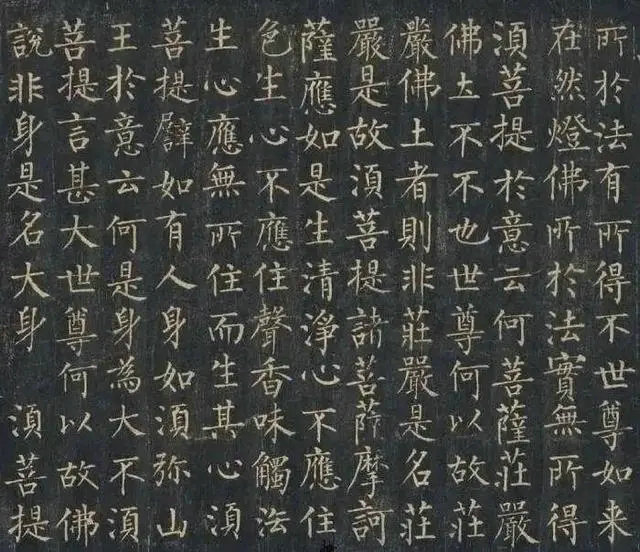 所於法有所得不世尊如来
在然燈佛所於法實無所得
須菩提於意云何菩薩莊嚴
佛土不不也世尊何以故莊
嚴佛土者則非莊嚴是名莊
嚴是故須菩提諸菩薩摩訶
薩應如是生清淨心不應住
色生心不應住聲香味觸法
生心應無所住而生其心須
菩提譬如有人身如須弥山
王於意云何是身為大不須
菩提言甚大世尊何以故佛
說非身是名大身　須菩提